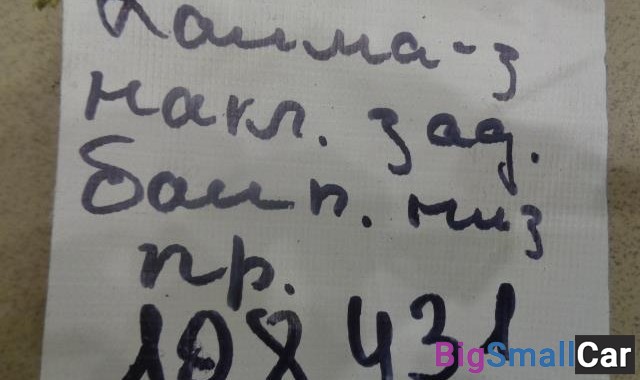 Каима-з
накл. зад.
бамп. низ
пр.
108 431
BigSmallCar